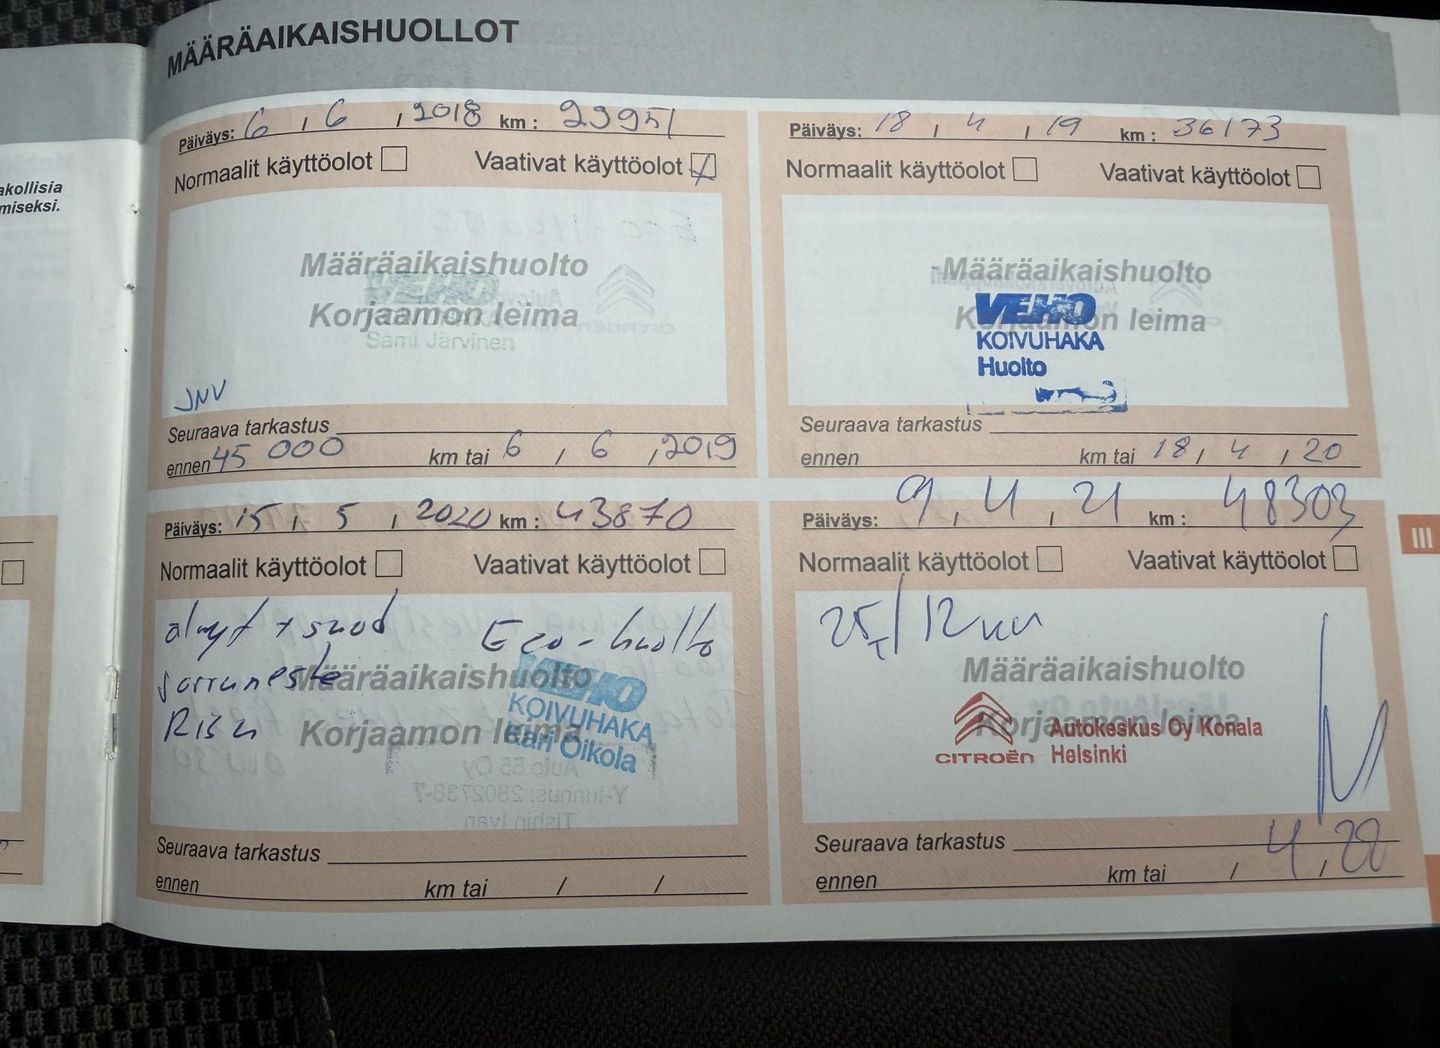 MÄÄRÄAIKAISHUOLLOT
akollisia
miseksi.
Päiväys: 6 , 6 , 2018 km : 29951
Normaalit käyttöolot Vaativat käyttöolot
Määräaikaishuolto
VEHO
Korjaamon leima
Sami Järvinen
JNV
Seuraava tarkastus
ennen 45 000 km tai 6 / 6 , 2019
Päiväys: 18 , 4 , 19 km : 36173
Normaalit käyttöolot Vaativat käyttöolot
Määräaikaishuolto
Korjaamon leima
VEHO
KOIVUHAKA
Huolto
Seuraava tarkastus
ennen km tai 18 , 4 , 20
Päiväys: 15 , 5 , 2020 km : 43870
Normaalit käyttöolot Vaativat käyttöolot
Eco-huolto
Määräaikaishuolto
Korjaamon leima
VEHO
KOIVUHAKA
Kari Oikola
Seuraava tarkastus
ennen km tai / /
Päiväys: 9 , 4 , 21 km : 48303
Normaalit käyttöolot Vaativat käyttöolot
Määräaikaishuolto
Korjaamon leima
CITROËN
Autokeskus Oy Konala
Helsinki
Seuraava tarkastus
ennen km tai / 4 , 22
III